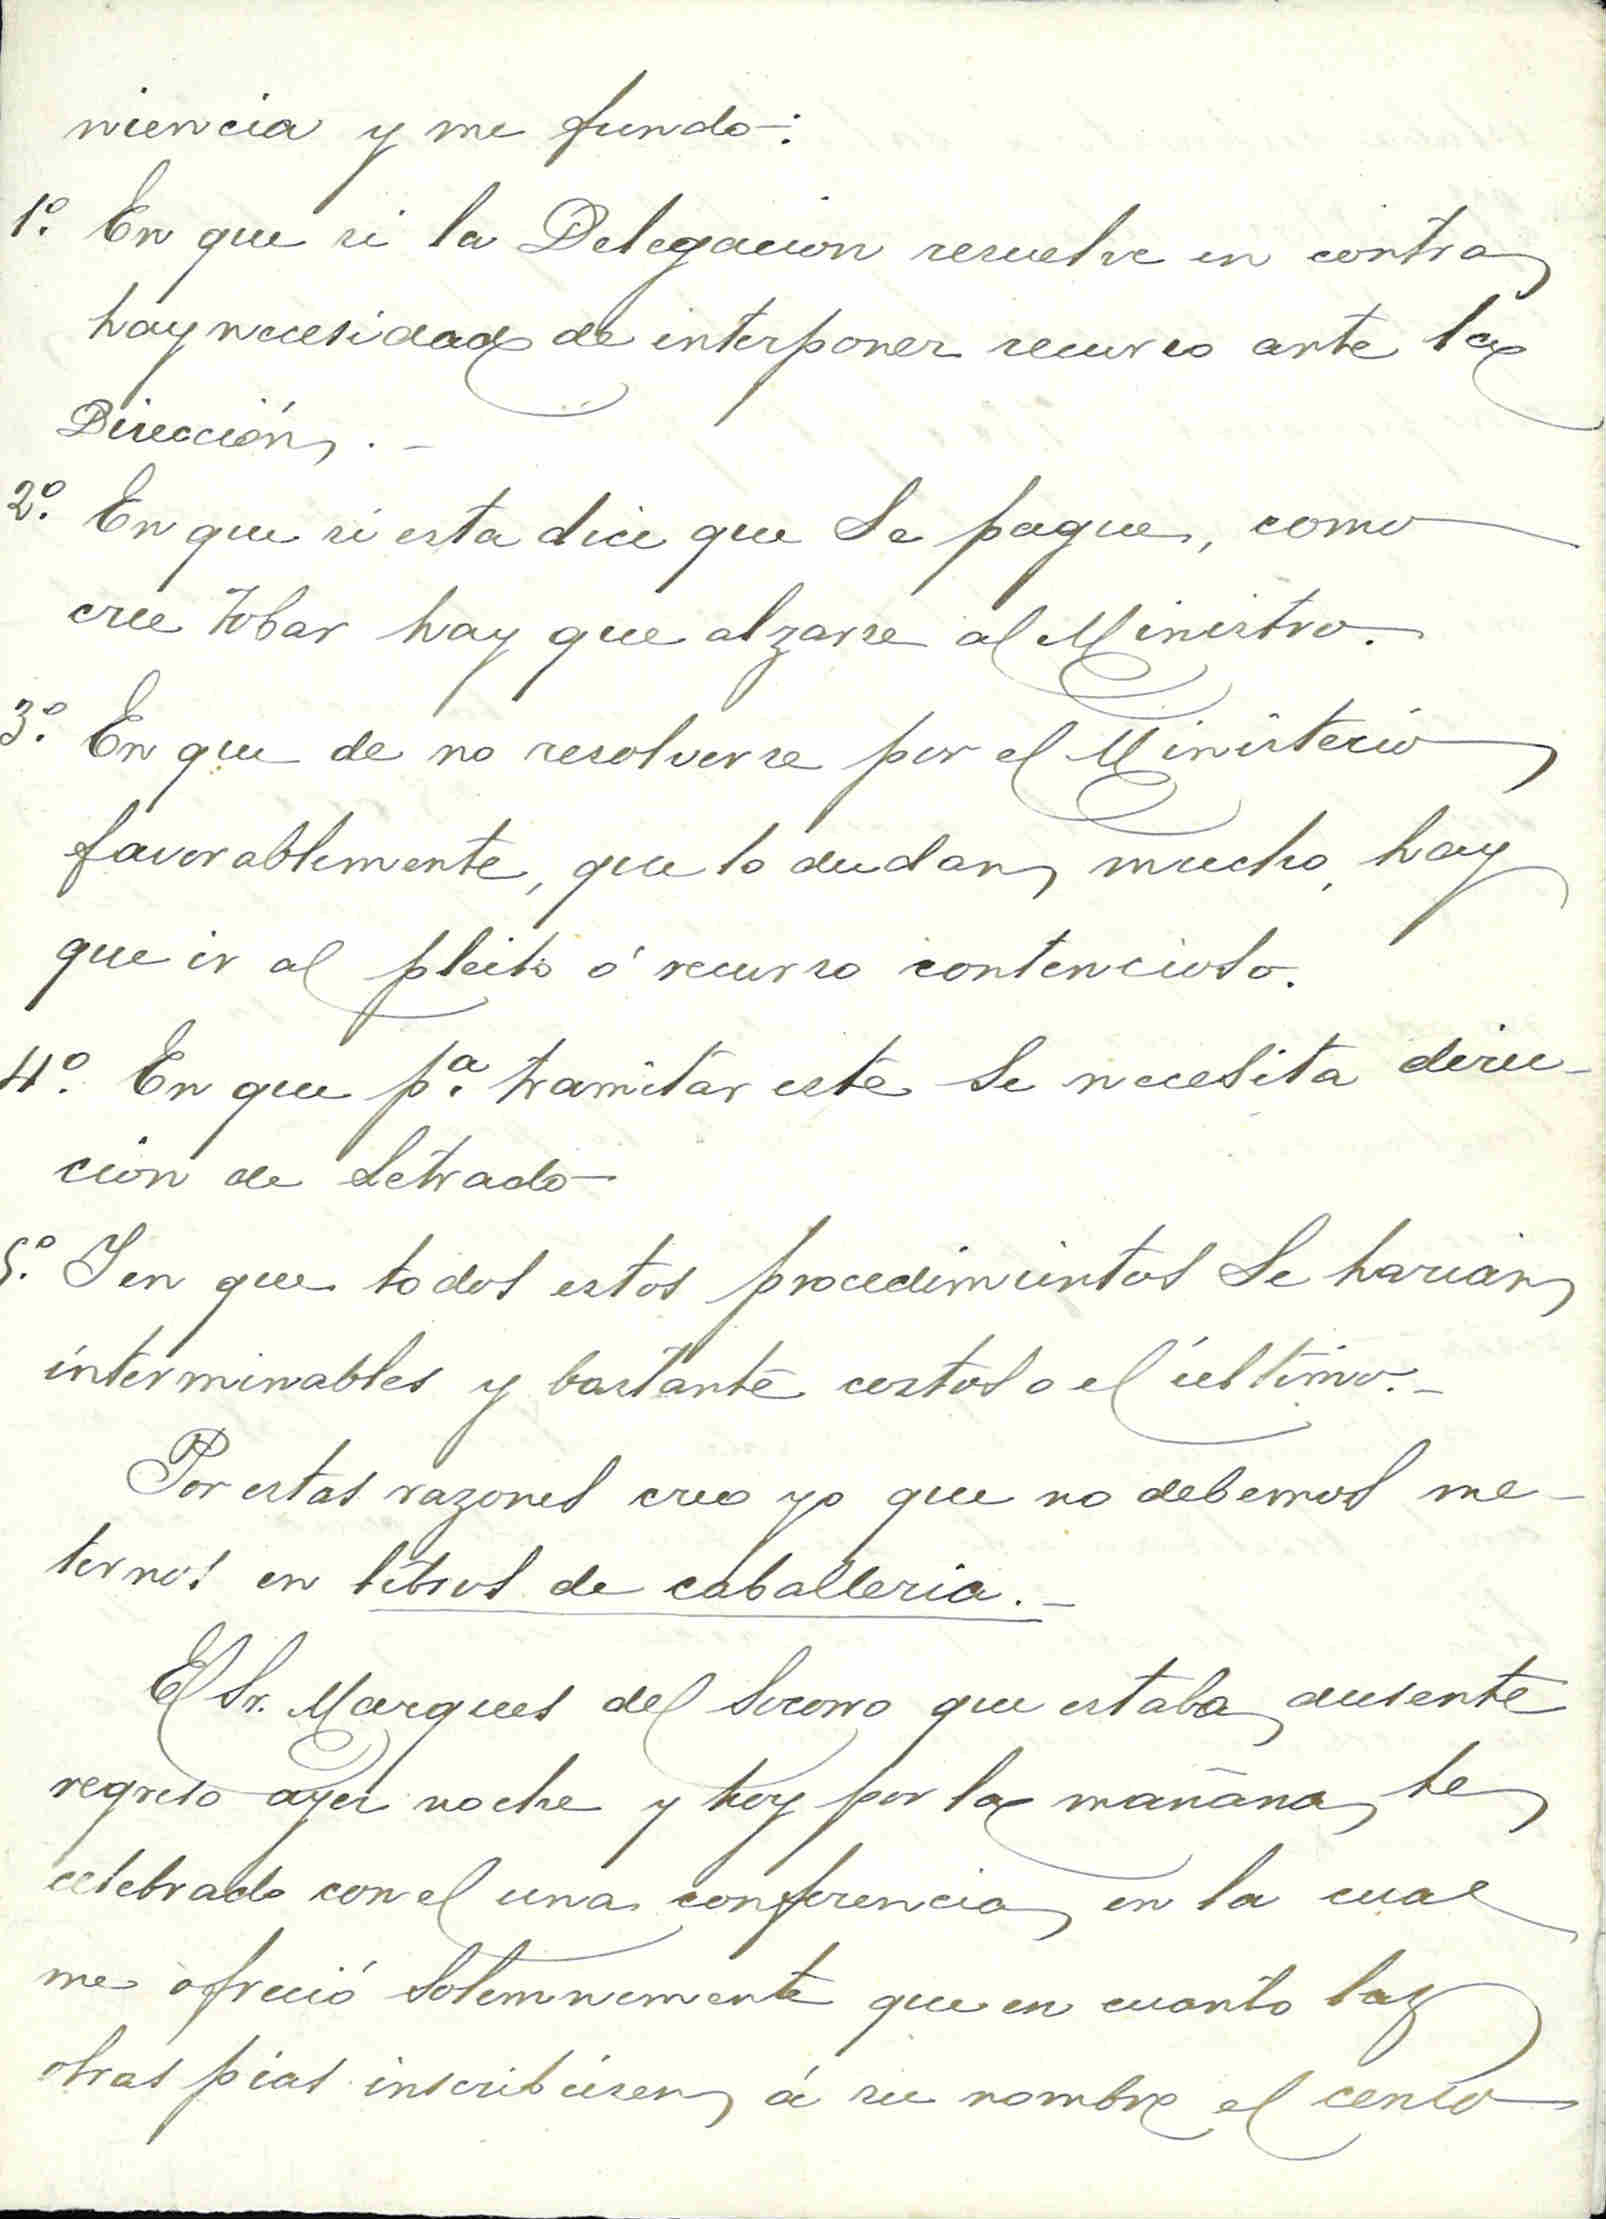 niencia y me fundo:
1º. En que si la Delegacion resuelve en contra
hay necesidad de interponer recurso ante la
Dirección.-
2º. En que si esta dice que se pague, como
cree Tobar hay que alzarse al Ministro.
3º. En que de no resolverse por el Ministerio
favorablemente, que lo dudan mucho, hay
que ir al pleito ó recurso contencioso.
4º. En que pª. tramitar este se necesita direc-
cion de Letrado
5º. Y en que todos estos procedimientos se harian
interminables y bastante costoso el último.-
Por estas razones creo yo que no debemos me-
ternos en libros de caballeria.-
El Sr. Marques del Socorro que estaba ausente
regreso ayer noche y hoy por la mañana he
celebrado con el una conferencia en la cual
me ofreció solemnemente que en cuanto las
obras pias inscribiesen á su nombre el censo